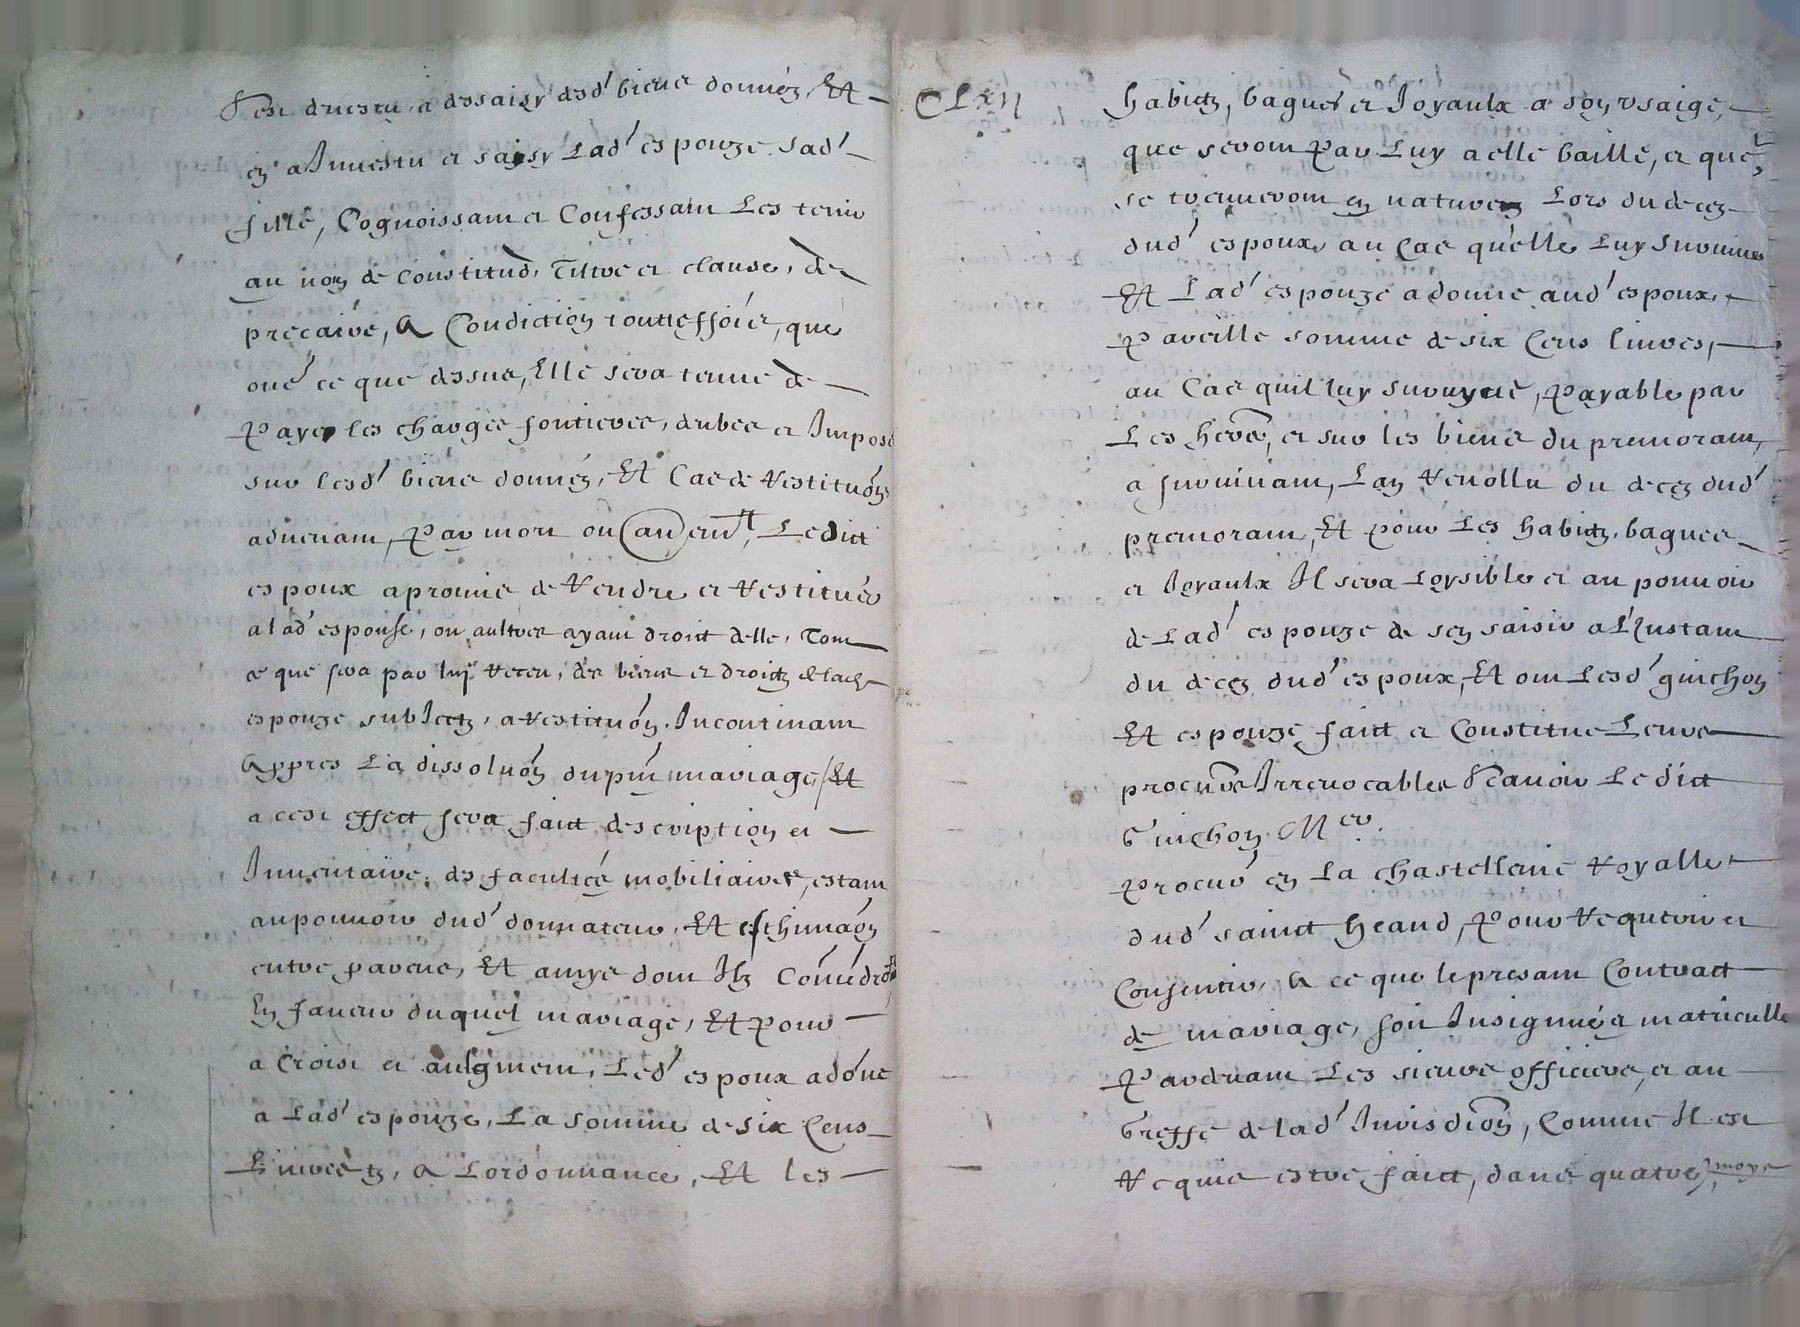 S'est devestu et dessaisy desd' biens donnés, Et
en a Investu et saisy Lad' espouze sad'
fille, Cognoissant et Confessant Les tenir
au nom de Constitud, Tiltre et clause, de
precaire, A Condiction touttesfoies, que
oue' ce que dessus, Elle sera tenue de
Payer les charges fontieres, dubes et Impos
sur lesd' biens donnés, Et Cas de Restituon
advenant, Par mort ou (au)ermt, Ledict
espoux a promis de Rendre et Restituer
a lad' espouse, ou aultres ayant droit delle, Tout
ce que sera par luy Receu, des biens et droictz de lad'
espouze subJectz, a Restituon, Incontinant
Appres La dissoluon du pnt mariage, Et
a cest effect sera faict description et
Inventaire, des facultés mobiliaires, estant
au pouvoir dud' donnateur, Et esthimaon
entre parens, Et amys dont Ilz Conviedront
En faveur duquel mariage, Et pour
a Croist et aulgment, Led' espoux a donne
a Lad' espouze, La somme de six Cens
Livres tz, A Lordonnance, Et les
CLxII
habictz, bagues et Joyaulx a son usaige,
que seront Par Luy a elle baille, et que
se treuveront en nature Lors du deces
dud' espoux, au Cas quelle Luy Survive
Et Lad' espouze a donne aud' espoux,
Pareille somme de six Cens livres,
au Cas quil luy survuyve, Payable par
Les hers, et sur les biens du premorant,
a survivant, Lan Revollu du deces dud'
premorant, Et pour Les habictz, bagues
et Joyaulx Il sera Loysible et au pouvoir
de Lad' espouze de sen saisir a L'Instant
du deces dud' espoux, Et ont Lesd' guichon
Et espouze faict et Constitue Leurs
procurs Irrevocables Scavoir Ledict
Guichon Mer.
Procur en La Chastellenie Royalle
dud' sainct heand, Pour Requerir et
Consentir, A ce que le presant Contract
de mariage, soit Insignue et matriculle
Pardevant Les sieurs officiers, et au
Greffe de lad' Jurisdion, Comme Il est
Requis estre faict, dans quatre moys